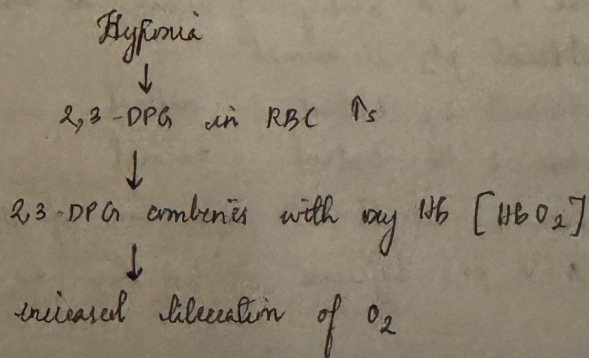 Hypoxia
↓
2,3-DPG in RBC ↑s
↓
2,3-DPG combines with oxy Hb [HbO2]
↓
increased liberation of O2